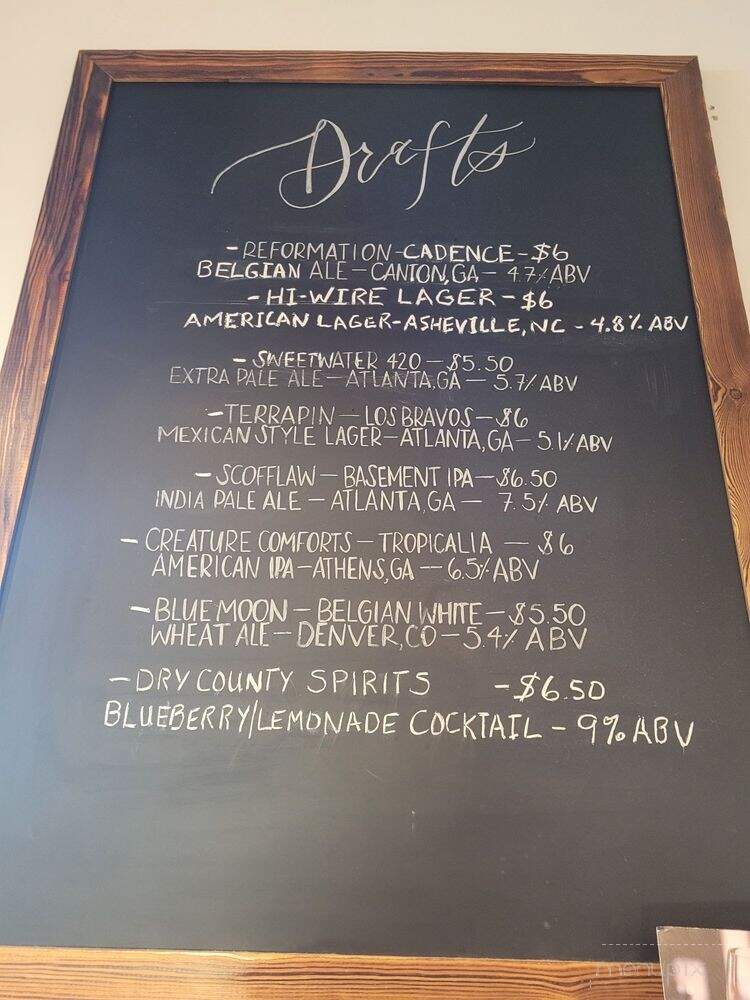 Drafts
- REFORMATION-CADENCE-$6
BELGIAN ALE - CANTON, GA - 4.7% ABV
- HI-WIRE LAGER - $6
AMERICAN LAGER-ASHEVILLE, NC - 4.8% ABV
- SWEETWATER 420 - $5.50
EXTRA PALE ALE - ATLANTA, GA - 5.7% ABV
- TERRAPIN - LOS BRAVOS - $6
MEXICAN STYLE LAGER - ATLANTA, GA - 5.1% ABV
- SCOFFLAW - BASEMENT IPA - $6.50
INDIA PALE ALE - ATLANTA, GA - 7.5% ABV
- CREATURE COMFORTS - TROPICALIA - $6
AMERICAN IPA - ATHENS, GA - 6.5% ABV
- BLUE MOON - BELGIAN WHITE - $5.50
WHEAT ALE - DENVER, CO - 5.4% ABV
- DRY COUNTY SPIRITS - $6.50
BLUEBERRY/LEMONADE COCKTAIL - 9% ABV